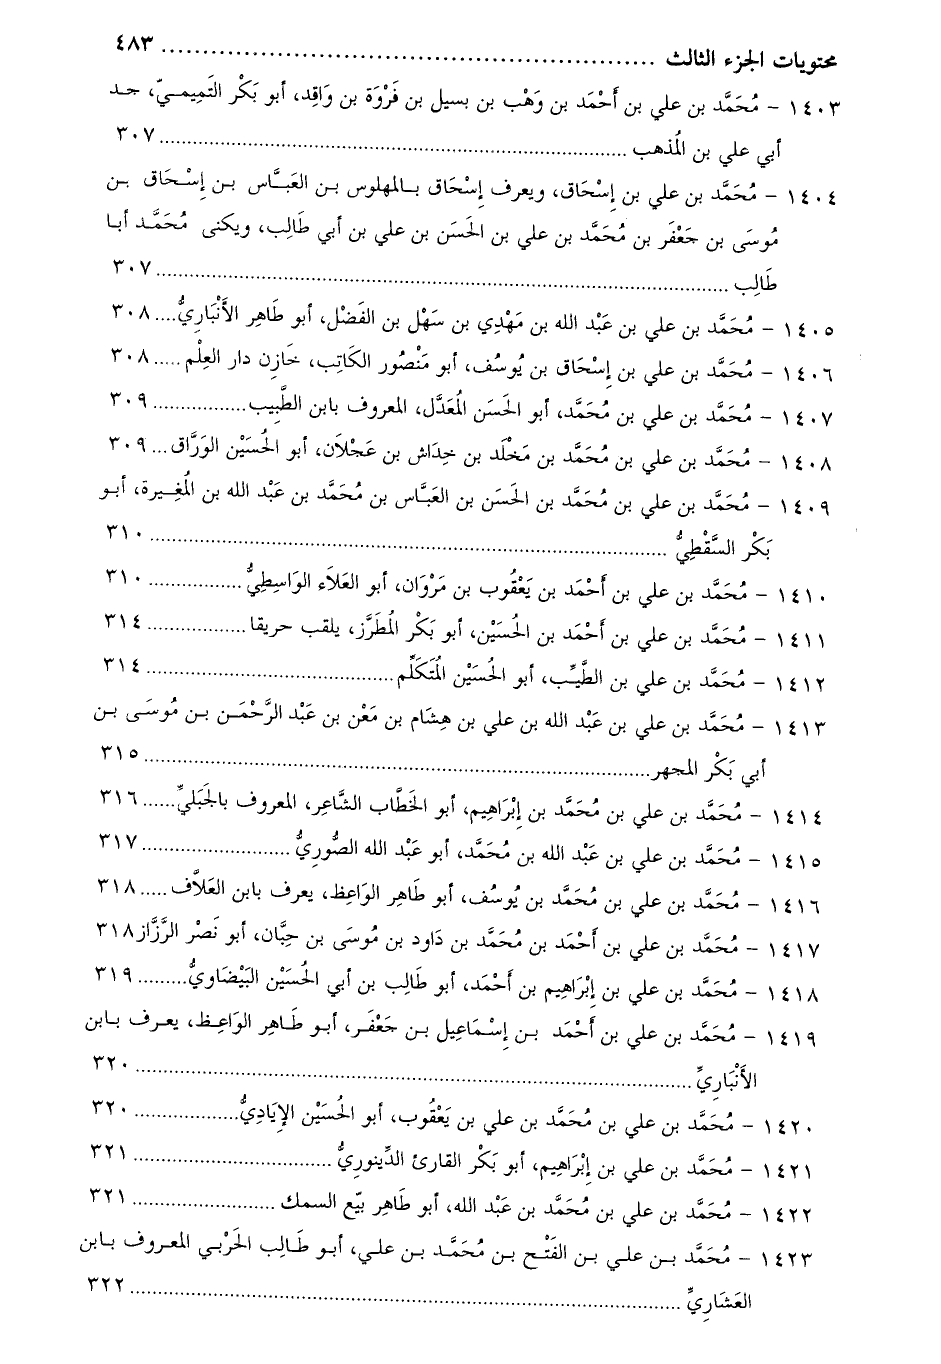 محتويات الجزء الثالث ........................................................... ٤٨٣
١٤٠٣ - مُحَمَّد بن علي بن أَحْمَد بن وَهْب بن بسيل بن فَرْوَة بن وَاقِد، أبو بَكْر التَمِيمـيّ، جـد
أبي علي بن المُذهب ........................................................... ٣٠٧
١٤٠٤ - مُحَمَّد بن علي بن إِسْحَاق، ويعرف إِسْحَاق بـالمهلوس بـن العَبـَّاس بـن إِسْـحَاق بـن
مُوسَى بن جَعْفَر بن مُحَمَّد بن علي بن الحَسَن بن علي بن أبي طَالِب، ويكنى مُحَمَّـد أبـا
طَالِب ........................................................... ٣٠٧
١٤٠٥ - مُحَمَّد بن علي بن عَبْد الله بن مَهْدِي بن سَهْل بن الفَضْل، أبو طَاهِر الأَنْبَارِيُّ.... ٣٠٨
١٤٠٦ - مُحَمَّد بن علي بن إِسْحَاق بن يُوسُف، أبو مَنْصُور الكَاتِب، خَازِن دار العِلْم ..... ٣٠٨
١٤٠٧ - مُحَمَّد بن علي بن مُحَمَّد، أبو الحَسَن المُعَدَّل، المعروف بابن الطَّبِيب................. ٣٠٩
١٤٠٨ - مُحَمَّد بن علي بن مُحَمَّد بن مَخْلَد بن خِدَاش بن عَجْلاَن، أبو الحُسَيْن الوَرَّاق ... ٣٠٩
١٤٠٩ - مُحَمَّد بن علي بن مُحَمَّد بن الحَسَن بن العَبَّاس بن مُحَمَّد بن عَبْد الله بن المُغِـيرة، أبـو
بَكْر السَّقْطِيُّ ........................................................... ٣١٠
١٤١٠ - مُحَمَّد بن علي بن أَحْمَد بن يَعْقُوب بن مَرْوَان، أبو العَلاَء الوَاسِطِيُّ................. ٣١٠
١٤١١ - مُحَمَّد بن علي بن أَحْمَد بن الحُسَيْن، أبو بَكْر المُطَرَّز، يلقب حريقا ................. ٣١٤
١٤١٢ - مُحَمَّد بن علي بن الطَّيِّب، أبو الحُسَيْن المُتَكَلِّم........................................ ٣١٤
١٤١٣ - مُحَمَّد بن علي بن عَبْد الله بن علي بن هِشَام بن مَعْن بن عَبْد الرَّحْمَـن بـن مُوسَـى بـن
أبي بَكْر المجهر........................................................... ٣١٥
١٤١٤ - مُحَمَّد بن علي بن مُحَمَّد بن إِبْرَاهِيم، أبو الخَطَّاب الشَّاعِر، المعروف بالجَبَليِّ...... ٣١٦
١٤١٥ - مُحَمَّد بن علي بن عَبْد الله بن مُحَمَّد، أبو عَبْد الله الصُّورِيُّ ......................... ٣١٧
١٤١٦ - مُحَمَّد بن علي بن مُحَمَّد بن يُوسُف، أبو طَاهِر الوَاعِظ، يعرف بابن العَلاَّف ..... ٣١٨
١٤١٧ - مُحَمَّد بن علي بن أَحْمَد بن مُحَمَّد بن دَاود بن مُوسَى بن حِبَّان، أبو نَصْر الرَّزَّاز ٣١٨
١٤١٨ - مُحَمَّد بن علي بن إِبْرَاهِيم بن أَحْمَد، أبو طَالِب بن أبي الحُسَيْن البَيْضَاوِيُّ......... ٣١٩
١٤١٩ - مُحَمَّد بن علي بن أَحْمَد بـن إِسْـمَاعِيل بـن جَعْفَـر، أبـو طَـاهِر الوَاعِـظ، يعـرف بـابن
الأَنْبَارِيِّ ........................................................... ٣٢٠
١٤٢٠ - مُحَمَّد بن علي بن مُحَمَّد بن علي بن يَعْقُوب، أبو الحُسَيْن الإِيَادِيُّ.................. ٣٢٠
١٤٢١ - مُحَمَّد بن علي بن إِبْرَاهِيم، أبو بَكْر القَارئ الدِّينورِيُّ .............................. ٣٢١
١٤٢٢ - مُحَمَّد بن علي بن مُحَمَّد بن عَبْد الله، أبو طَاهِر بيّع السمك ....................... ٣٢١
١٤٢٣ - مُحَمَّد بـن علـي بـن الفَتْـح بـن مُحَمَّـد بـن علـي، أبـو طَـالِب الحَرْبي المعـروف بـابن
العَشَارِيِّ ........................................................... ٣٢٢